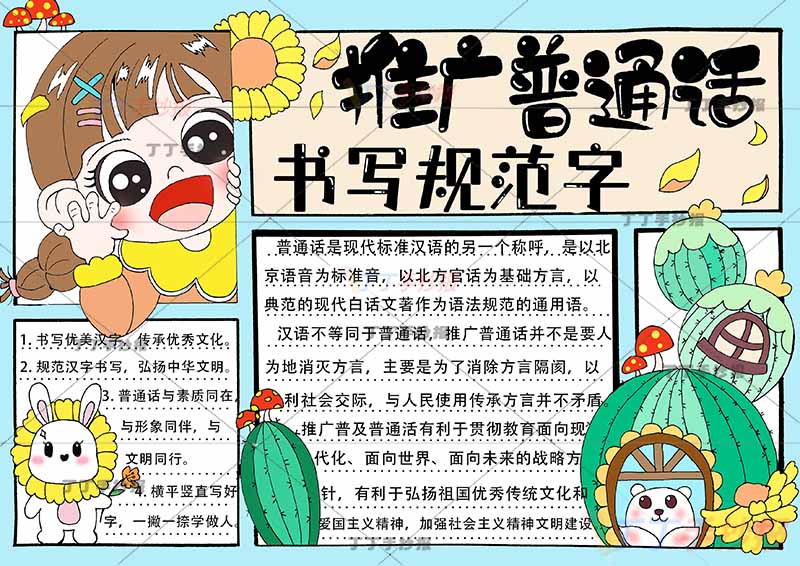 推广普通话
书写规范字
普通话是现代标准汉语的另一个称呼，是以北
京语音为标准音，以北方官话为基础方言，以
典范的现代白话文著作为语法规范的通用语。
汉语不等同于普通话，推广普通话并不是要人
为地消灭方言，主要是为了消除方言隔阂，以
利社会交际，与人民使用传承方言并不矛盾
推广普及普通活有利于贯彻教育面向现
代化、面向世界、面向未来的战略方
针，有利于弘扬祖国优秀传统文化和
爱国主义精神，加强社会主义精神文明建设
1.书写优美汉字，传承优秀文化。
2.规范汉字书写，弘扬中华文明。
3.普通话与素质同在，
与形象同伴，与
文明同行。
4.横平竖直写好
字，一撇一捺学做人。
丁丁手抄报
丁丁手抄报
丁丁手抄报
丁丁手抄报
丁丁手抄报